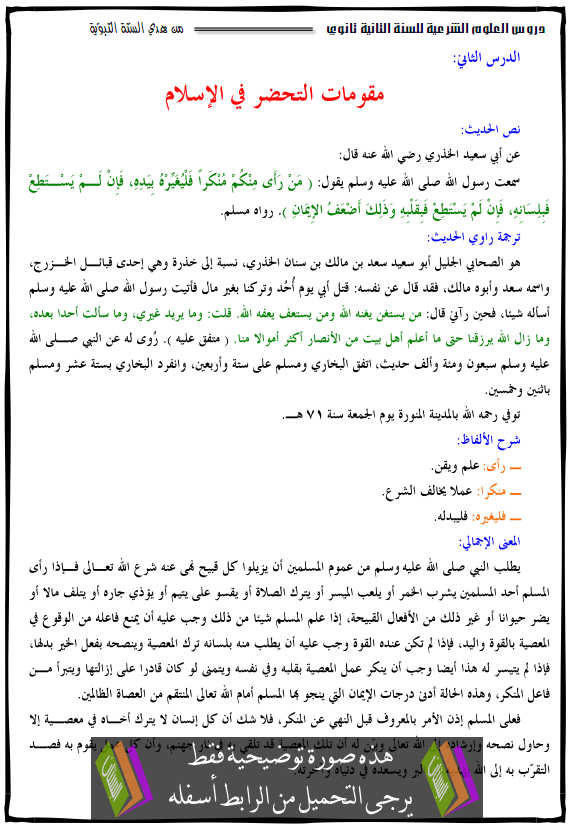 دروس العلوم الشرعية للسنة الثانية ثانوي من هدي السنّة النبويّة
الدرس الثاني:
مقومات التحضر في الإسلام
نص الحديث:
عن أبي سعيد الخدري رضي الله عنه قال:
سمعت رسول الله صلى الله عليه وسلم يقول: ( مَنْ رَأَى مِنْكُمْ مُنْكَراً فَلْيُغَيِّرْهُ بِيَدِهِ، فَإِنْ لَـمْ يَسْـتَطِعْ
فَبِلِسَانِهِ، فَإِنْ لَمْ يَسْتَطِعْ فَبِقَلْبِهِ وَذَلِكَ أَضْعَفُ الإِيمَانِ ). رواه مسلم.
ترجمة راوي الحديث:
هو الصحابي الجليل أبو سعيد سعد بن مالك بن سنان الخذري، نسبة إلى خذرة وهي إحدى قبائـل الخـزرج،
واسمه سعد وأبوه مالك، فقد قال عن نفسه: قتل أبي يوم أُحُد وتركنا بغير مال فأتيت رسول الله صلى الله عليه وسلم
أسأله شيئا، فحين رآني قال: من يستغن يغنه الله ومن يستعف يعفه الله. قلت: وما يريد غيري، وما سألت أحدا بعده،
وما زال الله يرزقنا حتى ما أعلم أهل بيت من الأنصار أكثر أموالا منا. ( متفق عليه ). رُوى له عن النبي صـلى الله
عليه وسلم سبعون ومئة وألف حديث، اتفق البخاري ومسلم على ستة وأربعين، وانفرد البخاري بستة عشر ومسلم
باثنين وخمسين.
توفي رحمه الله بالمدينة المنورة يوم الجمعة سنة ٧١ هـ.
شرح الألفاظ:
ـ رأى: علم ويقن.
ـ منكرا: عملا يخالف الشرع.
ـ فليغيره: فليبدله.
المعنى الإجمالي:
يطلب النبي صلى الله عليه وسلم من عموم المسلمين أن يزيلوا كل قبيح نهى عنه شرع الله تعـالى فـإذا رأى
المسلم أحد المسلمين يشرب الخمر أو يلعب الميسر أو يترك الصلاة أو يقسو على يتيم أو يؤذي جاره أو يتلف مالا أو
يضر حيوانا أو غير ذلك من الأفعال القبيحة، إذا علم المسلم شيئا من ذلك وجب عليه أن يمنع فاعله من الوقوع في
المعصية بالقوة واليد، فإذا لم تكن عنده القوة وجب عليه أن يطلب منه بلسانه ترك المعصية وينصحه بفعل الخير بدلها،
فإذا لم يتيسر له هذا أيضا وجب أن ينكر عمل المعصية بقلبه وفي نفسه ويتمنى لو كان قادرا على إزالتها ويتبرأ مـن
فاعل المنكر، وهذه الحالة أدنى درجات الإيمان التي ينجو بها المسلم أمام الله تعالى المنتقم من العصاة الظالمين.
فعلى المسلم إذن الأمر بالمعروف قبل النهي عن المنكر، فلا شك أن كل إنسان لا يترك أخـاه في معصـية إلا
وحاول نصحه وإرشاده إلى الله تعالى وبيّن له أن تلك المعصية قد تلقي به في نار جهنم، وأن كل عمل يقوم به قصـد
التقرّب به إلى الله ويسعده في دنياه وآخرته.
هذه صورة توضيحية فقط
يرجى التحميل من الرابط أسفله